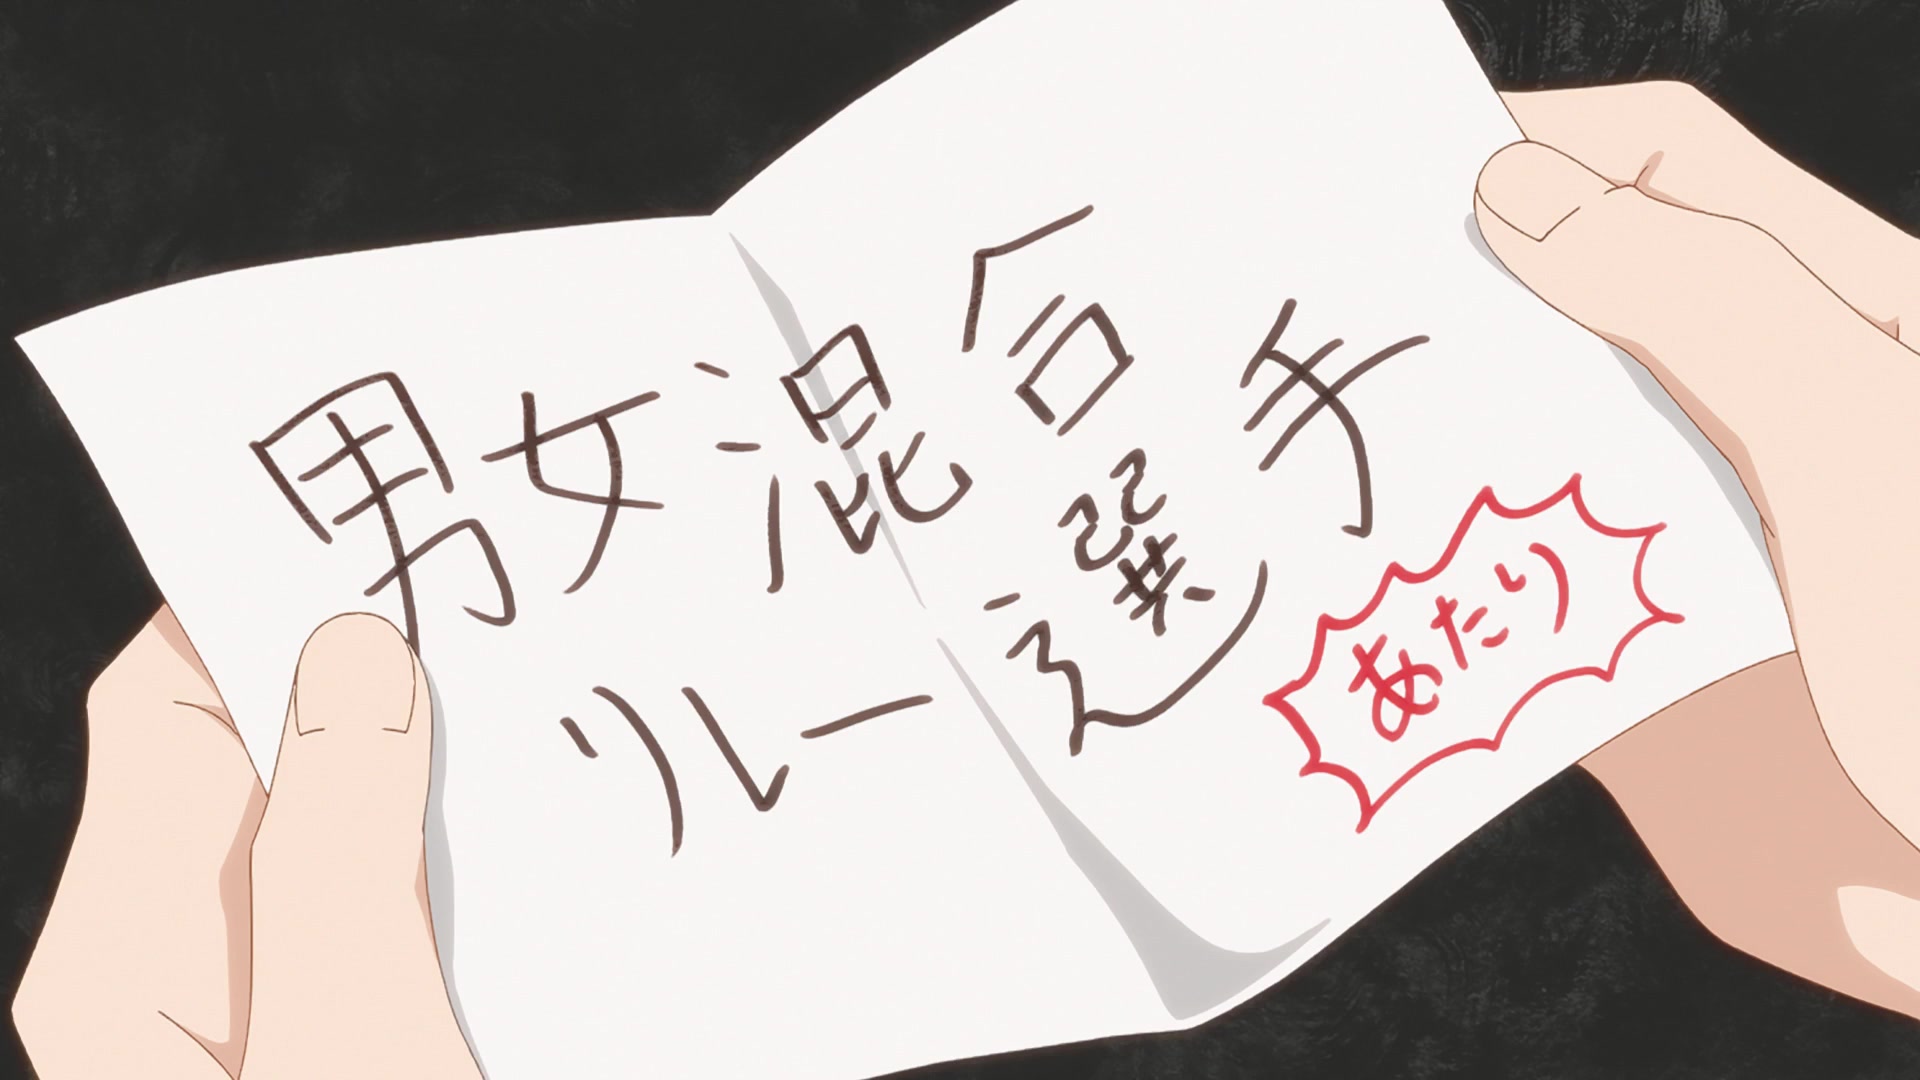 男女混合
リレー選手
あたり